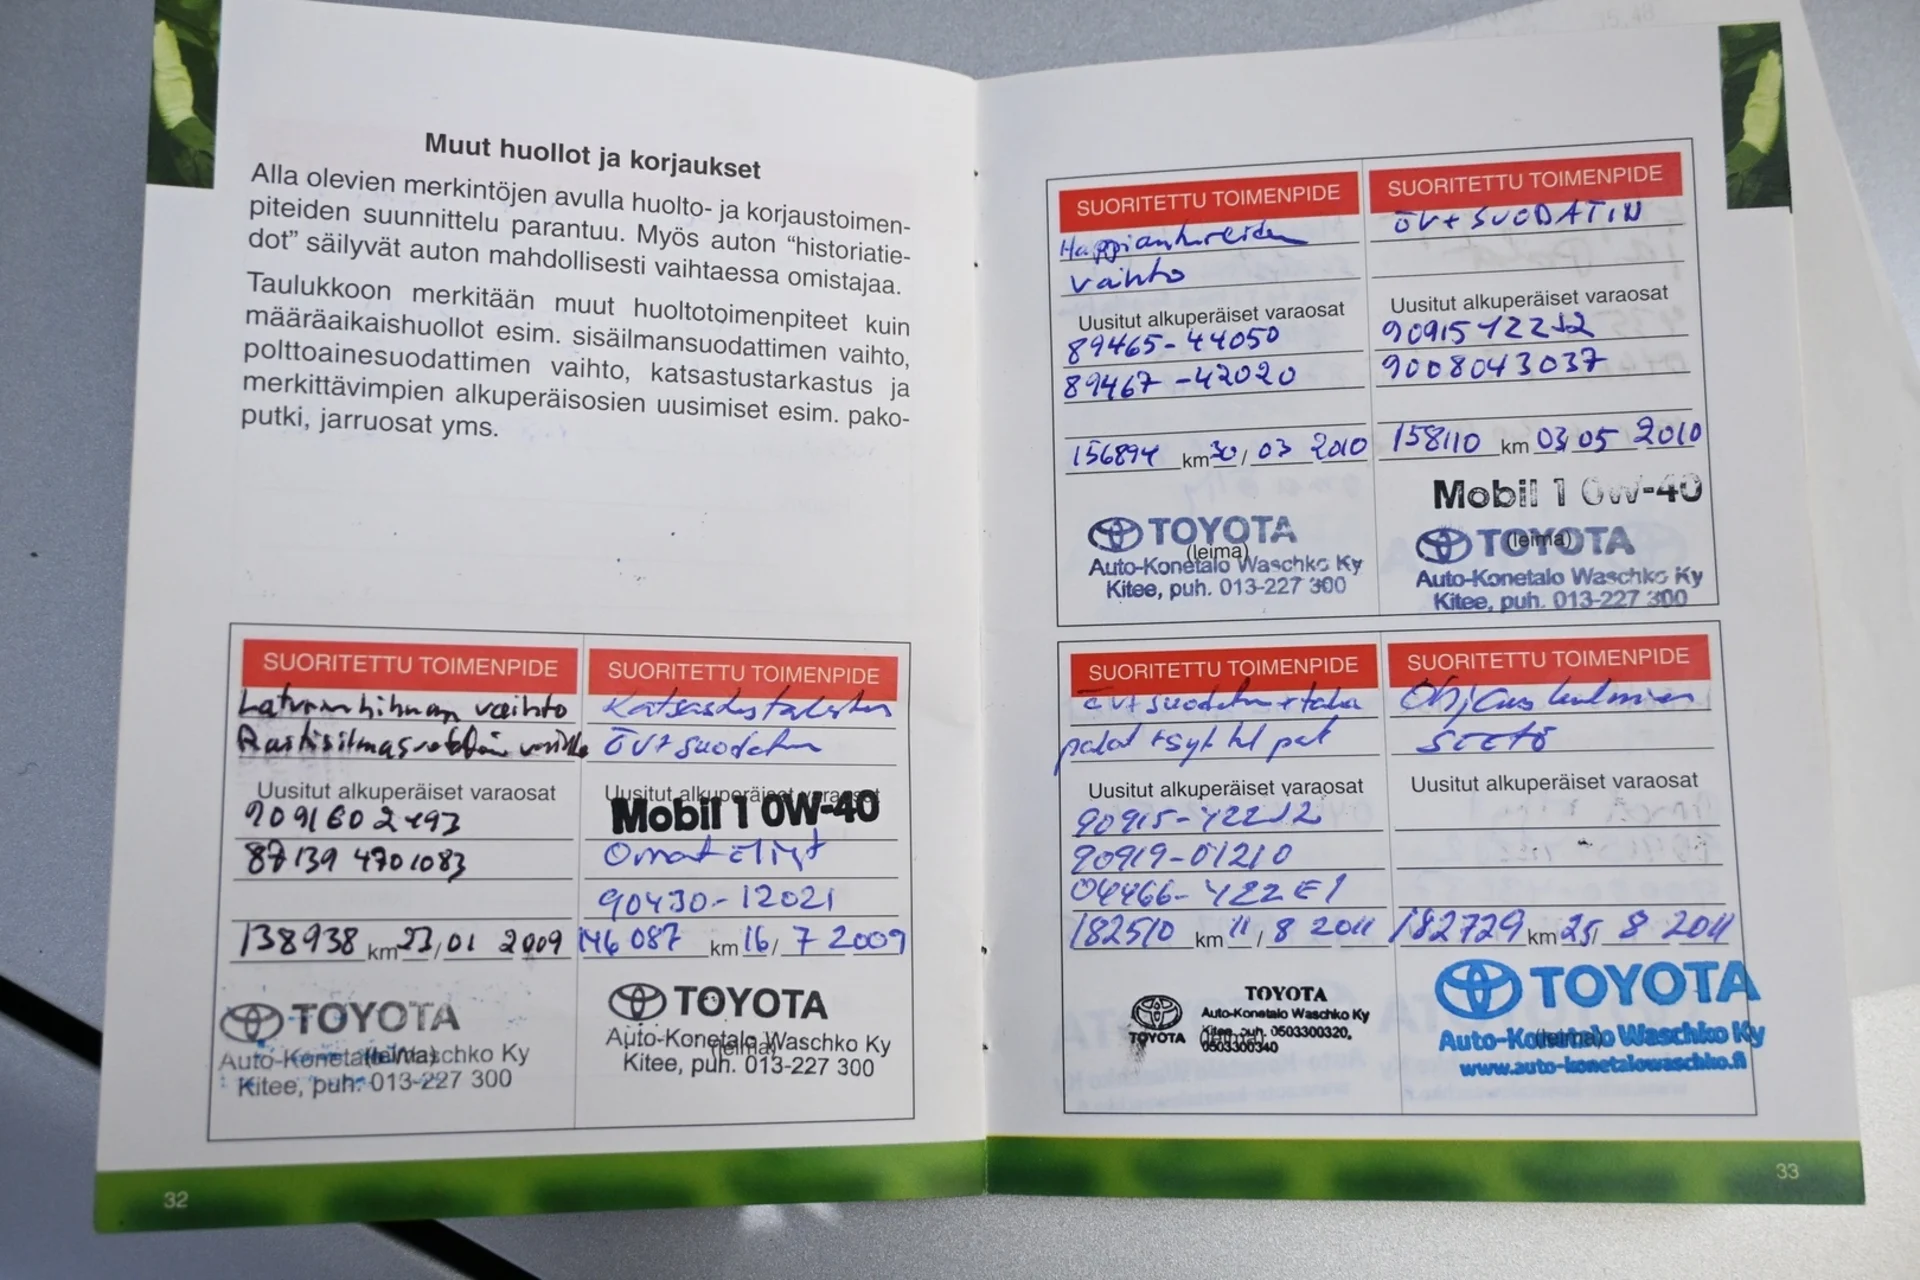 Muut huollot ja korjaukset
Alla olevien merkintöjen avulla huolto- ja korjaustoimen-
piteiden suunnittelu parantuu. Myös auton “historiatie-
dot” säilyvät auton mahdollisesti vaihtaessa omistajaa.
Taulukkoon merkitään muut huoltotoimenpiteet kuin
määräaikaishuollot esim. sisäilmansuodattimen vaihto,
polttoainesuodattimen vaihto, katsastustarkastus ja
merkittävimpien alkuperäisosien uusimiset esim. pako-
putki, jarruosat yms.
SUORITETTU TOIMENPIDE
Laturinhihnan vaihto
Raitisilmasuodattimen vaihto
Uusitut alkuperäiset varaosat
9091602493
87139 4701083
138938 km 23/01 2009
TOYOTA
(leima)
Auto-Konetalo Waschko Ky
Kitee, puh. 013-227 300
SUORITETTU TOIMENPIDE
Katsastustarkastus
ÖV+suodatin
Uusitut alkuperäiset varaosat
Mobil 1 0W-40
Omat öljyt
90430-12021
146 087 km 16/ 7 2009
TOYOTA
Auto-Konetalo Waschko Ky
(leima)
Kitee, puh. 013-227 300
32
SUORITETTU TOIMENPIDE
Happiantureiden
vaihto
Uusitut alkuperäiset varaosat
89465-44050
89467-42020
156894 km 30/03 2010
TOYOTA
(leima)
Auto-Konetalo Waschko Ky
Kitee, puh. 013-227 300
SUORITETTU TOIMENPIDE
ÖV+ SUODATIN
Uusitut alkuperäiset varaosat
90915 YZZJ2
9008043037
158110 km 03/05 2010
Mobil 1 0W-40
TOYOTA
(leima)
Auto-Konetalo Waschko Ky
Kitee, puh. 013-227 300
SUORITETTU TOIMENPIDE
ÖV+suodatin+taka
palat
Uusitut alkuperäiset varaosat
90915-YZZJ2
90919-01210
04466-YZZE1
182510 km 11/ 8 2011
TOYOTA
TOYOTA
Auto-Konetalo Waschko Ky
Kitee, puh. 0503300320,
(leima)
0503300340
SUORITETTU TOIMENPIDE
Ohjauskulmien
säätö
Uusitut alkuperäiset varaosat
182729 km 25/ 8 2011
TOYOTA
Auto-Konetalo Waschko Ky
(leima)
www.auto-konetalowaschko.fi
33